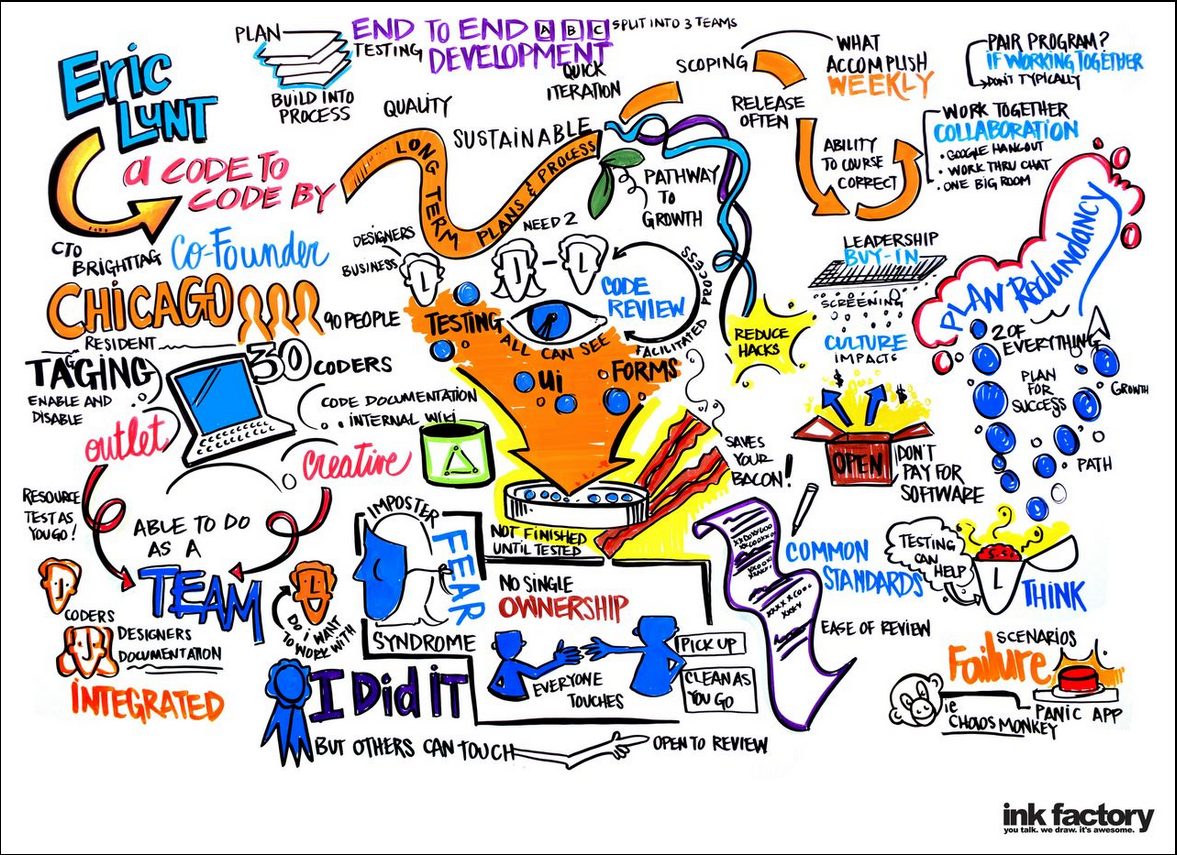 Eric
LUNT
a CODE TO
CODE BY
CTO
BRIGHTTAG
CO-FOUNDER
CHICAGO
90 PEOPLE
RESIDENT
30 CODERS
TAGING
ENABLE AND
DISABLE
outlet
creative
RESOURCE
TEST AS
YOU GO!
ABLE TO DO
AS A
TEAM
CODERS
DESIGNERS
DOCUMENTATION
INTEGRATED
DO I WANT
TO WORK WITH
PLAN
BUILD INTO
PROCESS
TESTING
END TO END
DEVELOPMENT
A B C
SPLIT INTO 3 TEAMS
QUALITY
QUICK
ITERATION
SUSTAINABLE
LONG TERM PLANS & PROCESS
PATHWAY
TO
GROWTH
SCOPING
WHAT
ACCOMPLISH
WEEKLY
RELEASE
OFTEN
ABILITY
TO COURSE
CORRECT
PAIR PROGRAM?
IF WORKING TOGETHER
DON'T TYPICALLY
WORK TOGETHER
COLLABORATION
• GOOGLE HANGOUT
• WORK THRU CHAT
• ONE BIG ROOM
DESIGNERS
BUSINESS
L
NEED 2
J - L
CODE
REVIEW
FACILITATED PROCESS
TESTING
ALL CAN SEE
Ui
FORMS
CODE DOCUMENTATION
• INTERNAL WIKI
REDUCE
HACKS
LEADERSHIP
BUY-IN
SCREENING
CULTURE
IMPACTS
$ $
OPEN
DON'T
PAY FOR
SOFTWARE
PLAN REDUNDANCY
2 OF
EVERYTHING
PLAN
FOR
SUCCESS
GROWTH
PATH
SAVES
YOUR
BACON!
NOT FINISHED
UNTIL TESTED
IMPOSTER
FEAR
SYNDROME
NO SINGLE
OWNERSHIP
EVERYONE
TOUCHES
PICK UP
CLEAN AS
YOU GO
I DID IT
BUT OTHERS CAN TOUCH
OPEN TO REVIEW
COMMON
STANDARDS
EASE OF REVIEW
TESTING
CAN
HELP
L
THINK
SCENARIOS
Failure
ie
CHAOS MONKEY
PANIC APP
ink factory
you talk. we draw. it's awesome.